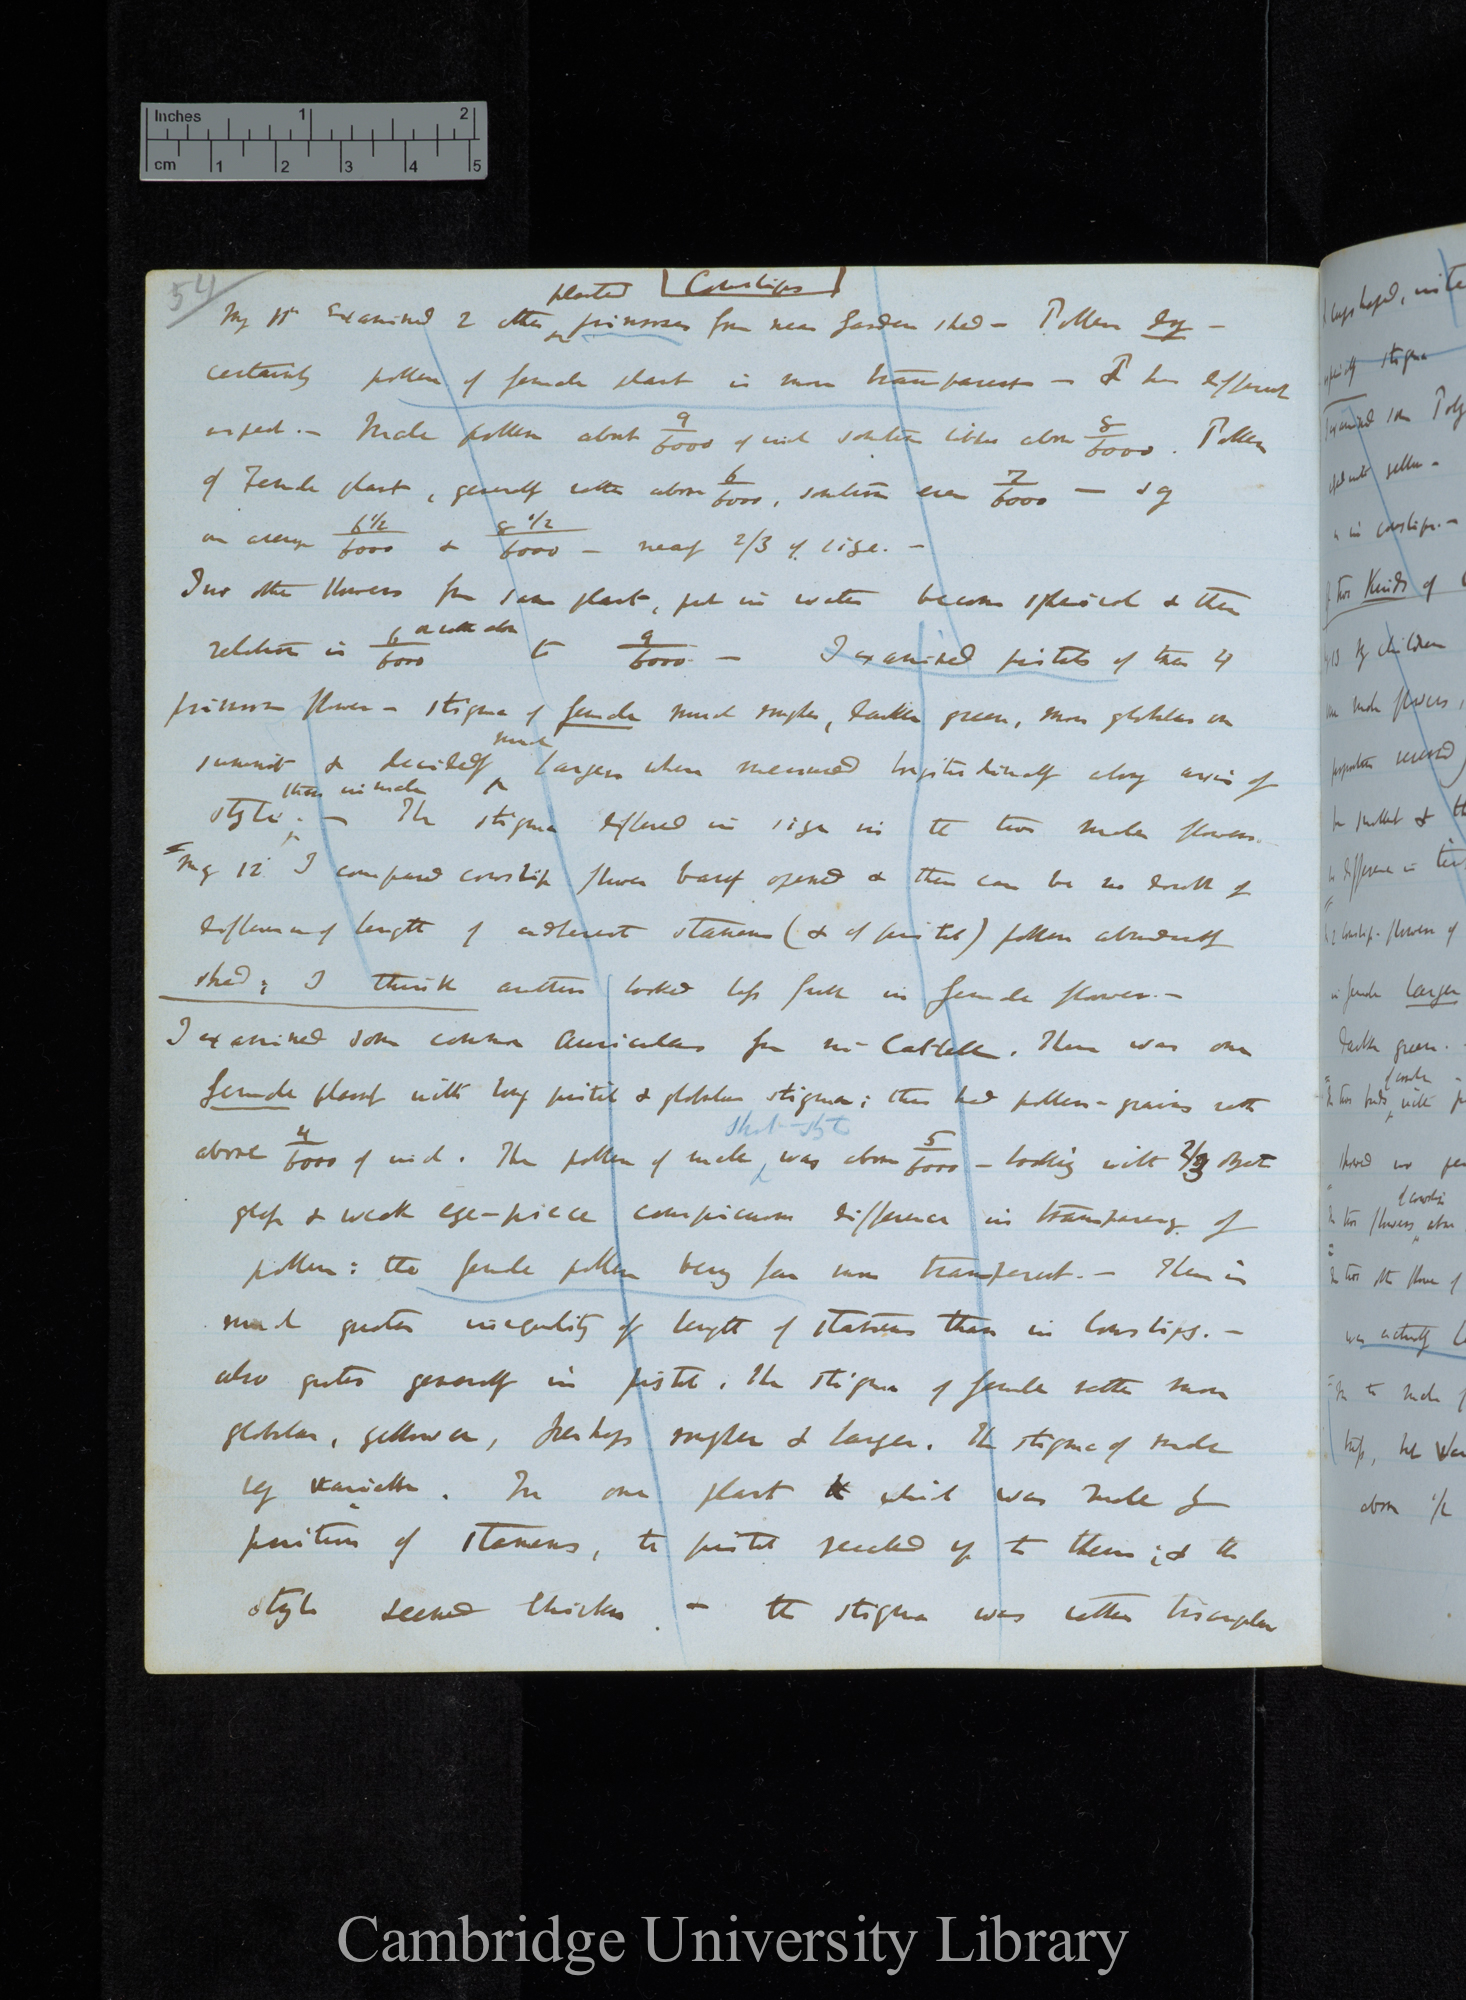 Inches 1 2
cm 1 2 3 4 5
54
Cowslips
planted
May 11th Examined 2 other primroses from near Garden shed — Pollen dry —
certainly pollen of female plant is more transparent — & has different
aspect. — Male pollen about 9/6000 of inch sometimes little above 8/6000. Pollen
of Female plant, generally rather above 6/6000, sometimes even 7/6000 — say
on average 6 1/2/6000 & 8 1/2/6000 — nearly 2/3 of size. —
Two other flowers from same plant, put in water become spherical & then
relation is 6/6000 or rather above to 9/6000 — I examined pistils of these 4
primrose flowers — stigma of female much rougher, darker green, more globular on
much
summit & decidedly larger when measured longitudinally along axis of
than in male
style. — The stigma differed in size in the two male flowers. —
May 12 I compared cowslip flowers barely opened & there can be no doubt of
difference of length of adherent stamens (& of pistil) pollen abundantly
shed; I think anthers looked less full in female flower. —
I examined some common Auriculas from Cattell. There was one
female plant with long pistil & globular stigma; this had pollen-grains rather
short-styled
above 4/6000 of inch. The pollen of male was above 5/6000 — looking with 2/3 object
glass & weak eye-piece conspicuous difference in transparency of
pollen: the female pollen being far more transparent. — There is
much greater inequality of length of stamens than in Cowslips. —
also greater generally in pistil. The stigma of female rather more
globular, yellower, perhaps rougher & larger. The stigma of male
very variable. In one plant which was male from
position of stamens, the pistil reached up to them; & the
style seemed thicker & the stigma was rather triangular
stigma
Examined some
in cowslips. —
two Kinds of
by children
male flowers,
smallest & th
difference in
cowslip flowers of
in female larger
darker green. —
of cowslip
with
of cowslip
two flowers
was actually
above 1/2
Cambridge University Library